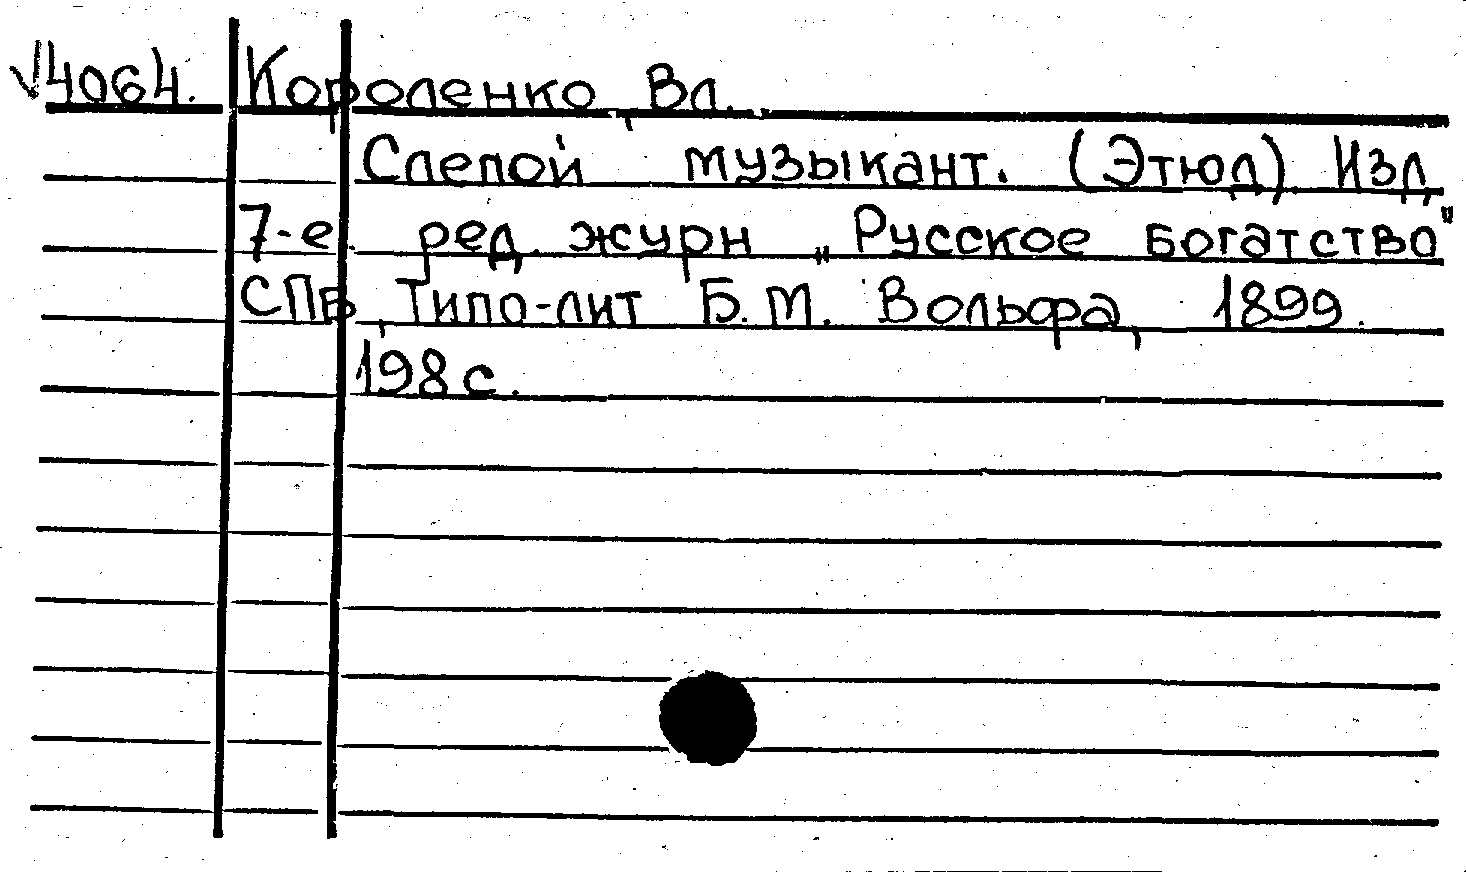 √4064. Короленко, Вл.
Слепой музыкант. (Этюд). Изд.
7-е. ред. журн „Русское богатство"
СПБ, Типо-лит Б. М. Вольфа, 1899.
198 с.